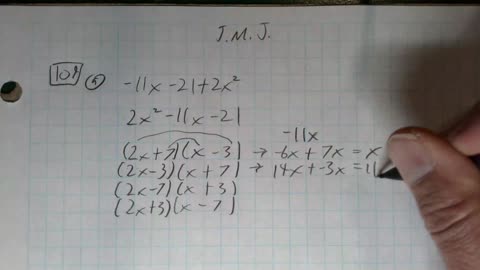 J.M.J.
108 5 -11x -21+2x²
2x² -11x -21
-11x
(2x+7)(x -3) → -6x + 7x = x
(2x-3)(x + 7) → 14x + -3x = 11
(2x-7)(x + 3)
(2x+3)(x - 7)